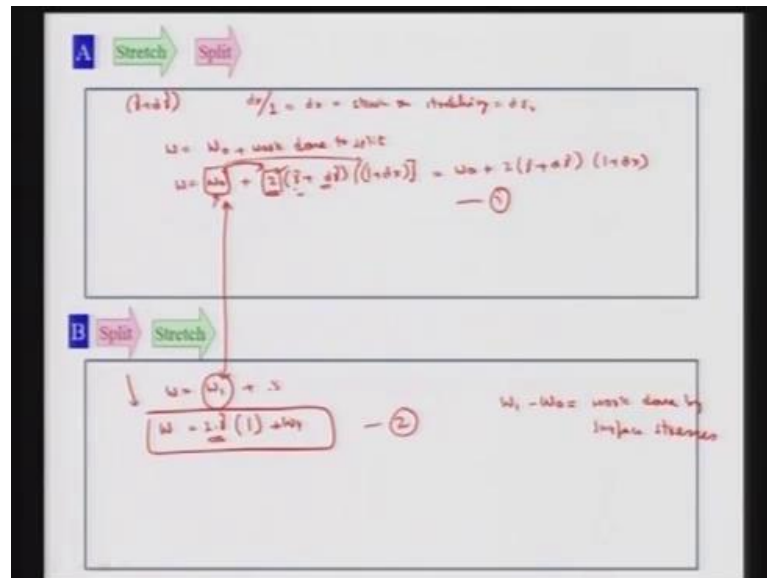 A Stretch Split
(γ+dγ) dx/1 = dx = strain on stretching = dε
W = W₀ + work done to split
W = W₀ + 2 (γ + dγ) (1+dx)] = W₀ + 2(γ+dγ) (1+dx)
— ①
B Split Stretch
W = W₁ +
W = 2γ (1) + W₁ — ②
W₁ - W₀ = work done by
surface stresses